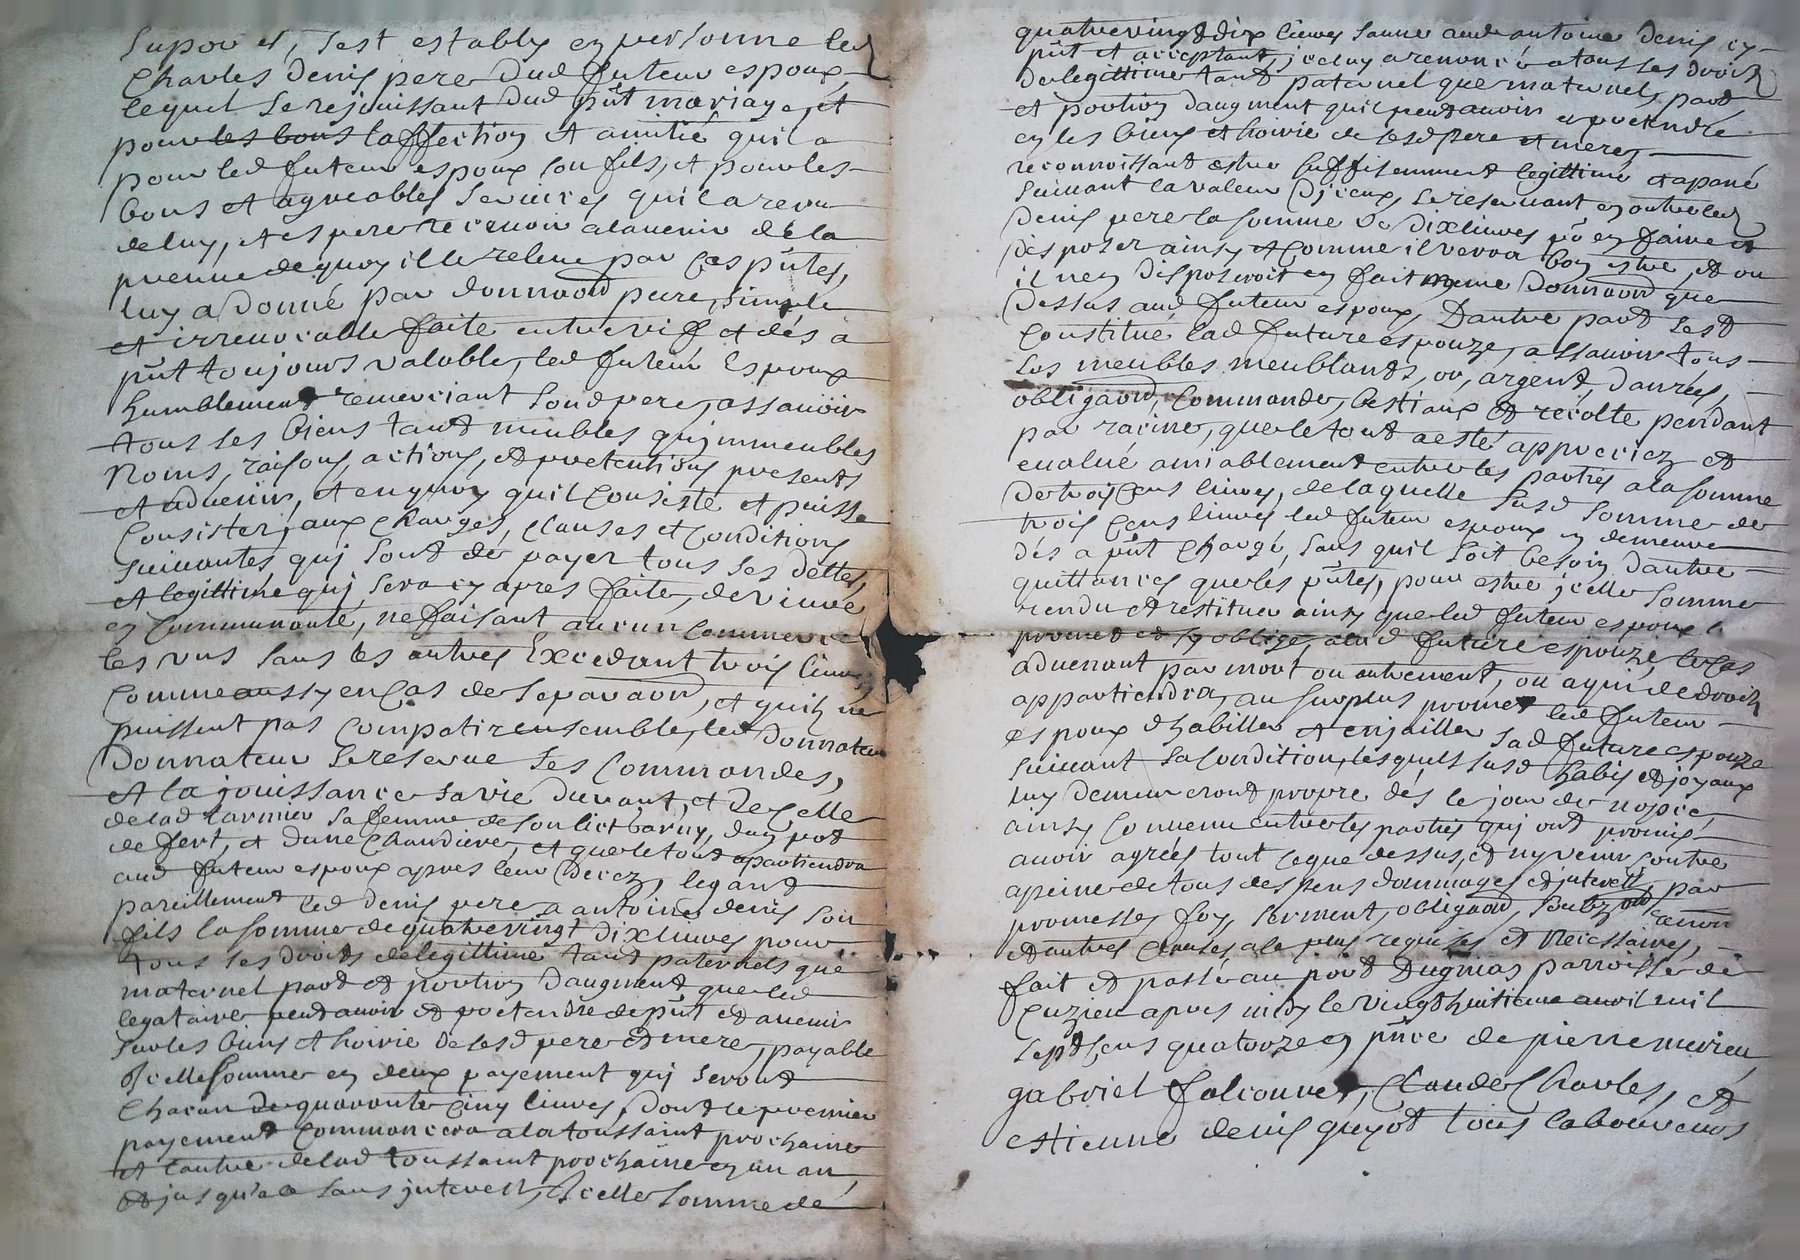 supporter, s'est estably en personne led
Charles denis pere dud futeur espoux
lequel se rejouissant dud pnt mariage, et
pour les bons laffection et amitié quil a
pour led futeur espoux son fils, et pour les
bons et agreables services quil a receu
de luy, et espere recevoir a lavenir de la
preuve de quoy il le releve par ces pntes,
luy a donné par donnaon pure, simple
et irrevocable faite entre vif et dés a
pnt toujours valable, led futeur Espoux
humblement remerciant sond pere, assavoir
tous ses biens tant meubles quj immeubles
Noms, raisons, actions, et pretentions presents
et advenir, et en quoy quil consiste et puisse
Consister, aux charges, clauses et Conditions
suivantes quj sont de payer tous ses dettes,
et legittime quj sera cy apres faite, de vivre
en Communauté, ne faisant aucun commerce
les uns sans les autres Excedant trois livres
Comme aussy en cas de separaon, et quils ne
puissent pas Compatir ensemble, led donnateur
Donnateur se reserve ses Commandes,
et la jouissance sa vie durant, et de celle
de lad larmier sa femme de son lict garny, dun pot
de fert, et dune chaudiere, et que le tout apartiendra
aud futeur espoux apres leur decez, legant
pareillement led denis pere a antoine denis son
fils la somme de quatrevingt dix livres pour
tous ses droits de legittime tant paternels que
maternel part et portion daugment que led
legataire peut avoir et pretendre de pnt et avenir
sur les biens et hoirie de sesd pere et mere, payable
Jcelle somme en deux payement quj seront
Chacun de quarante cinq livres, dont le premier
payement Commancera a la toussaint prochaine
et lautre de lad toussaint prochaine en un an,
et jusqu'a ce sans jnterest, Jcelle somme de
quatrevingt dix livres aud antoine denis cy
pnt et acceptant, jceluy a renoncé a tous ses droits
de legittime tant paternel que maternels, part
et portion daugment quil peut avoir et pretendre
en les biens et hoirie de sesd pere et mere,
reconnoissant estre suffisemment legittimé et apané
suivant la valeur djceux, se reservant en outre led
denis pere la somme de dix livres pr en faire et
disposer ainsy et comme il verra bon estre, et ou
il nen disposeroit en fait mesme donnaon que
dessus aud futeur espoux, Dautre part sest
Constitué lad future espouze, assavoir tous
ses meubles meublants, or, argent, danrées,
obligaon, Commandes, bestiaux et recolte pendant
par racine, que le tout a esté appreciez et
evalué amiablement entre les parties a la somme
de trois cens livres, de laquelle susd somme de
trois cens livres led futeur espoux en demeure
dés a pnt chargé, sans quil soit besoin dautre
quittances que les pntes, pour estre jcelle somme
rendu et restituer ainsy que led futeur espoux
promet et sy oblige, a lad future espouze, le cas
advenant par mort ou autrement, ou a qui de droit
appartiendra, au surplus promet led futeur
espoux dhabiller et enjailler sad future espouze
suivant sa Condition, lesquels susd habis et joyaux
luy demeureront propre dés le jour de nopce,
ainsy Convenu entre les parties quj ont promis
avoir agréés tout ceque dessus, et ny venir contre
a peine de tous despens dommages et jnterests, par
promesses foy, serment, obligaon, renon
et autres clauses a ce plus requises et Necessaires,
fait et passé au port Dugnias parroisse de
Cuzieu apres midy le vingt huitieme avril mil
sept cens quatorze en pnce de pierre merieu
gabriel falconnet, Claude Charles, et
estienne denis guyot tous laboureurs